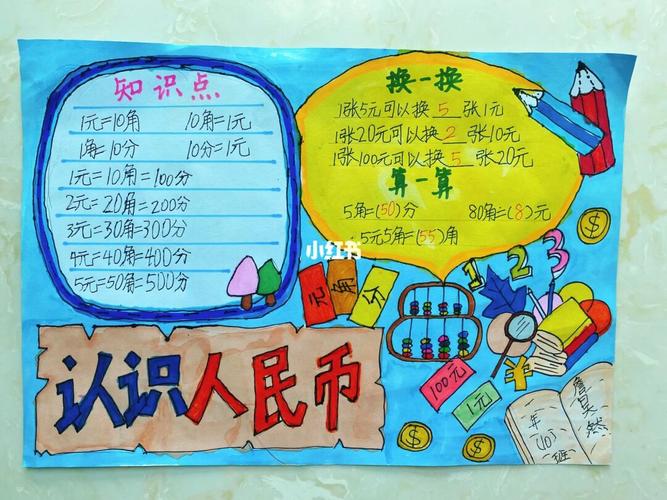 知识点
1元=10角 10角=1元
1角=10分 10分=1元
1元=10角=100分
2元=20角=200分
3元=30角=300分
4元=40角=400分
5元=50角=500分
换一换
1张5元可以换5张1元
1张20元可以换2张10元
1张100元可以换5张20元
算一算
5角=(50)分 80角=(8)元
5元5角=(55)角
小红书
元 角 分
1 2 3
认识人民币
100元
1元
¥
$
$
$
年
(10)
班
然